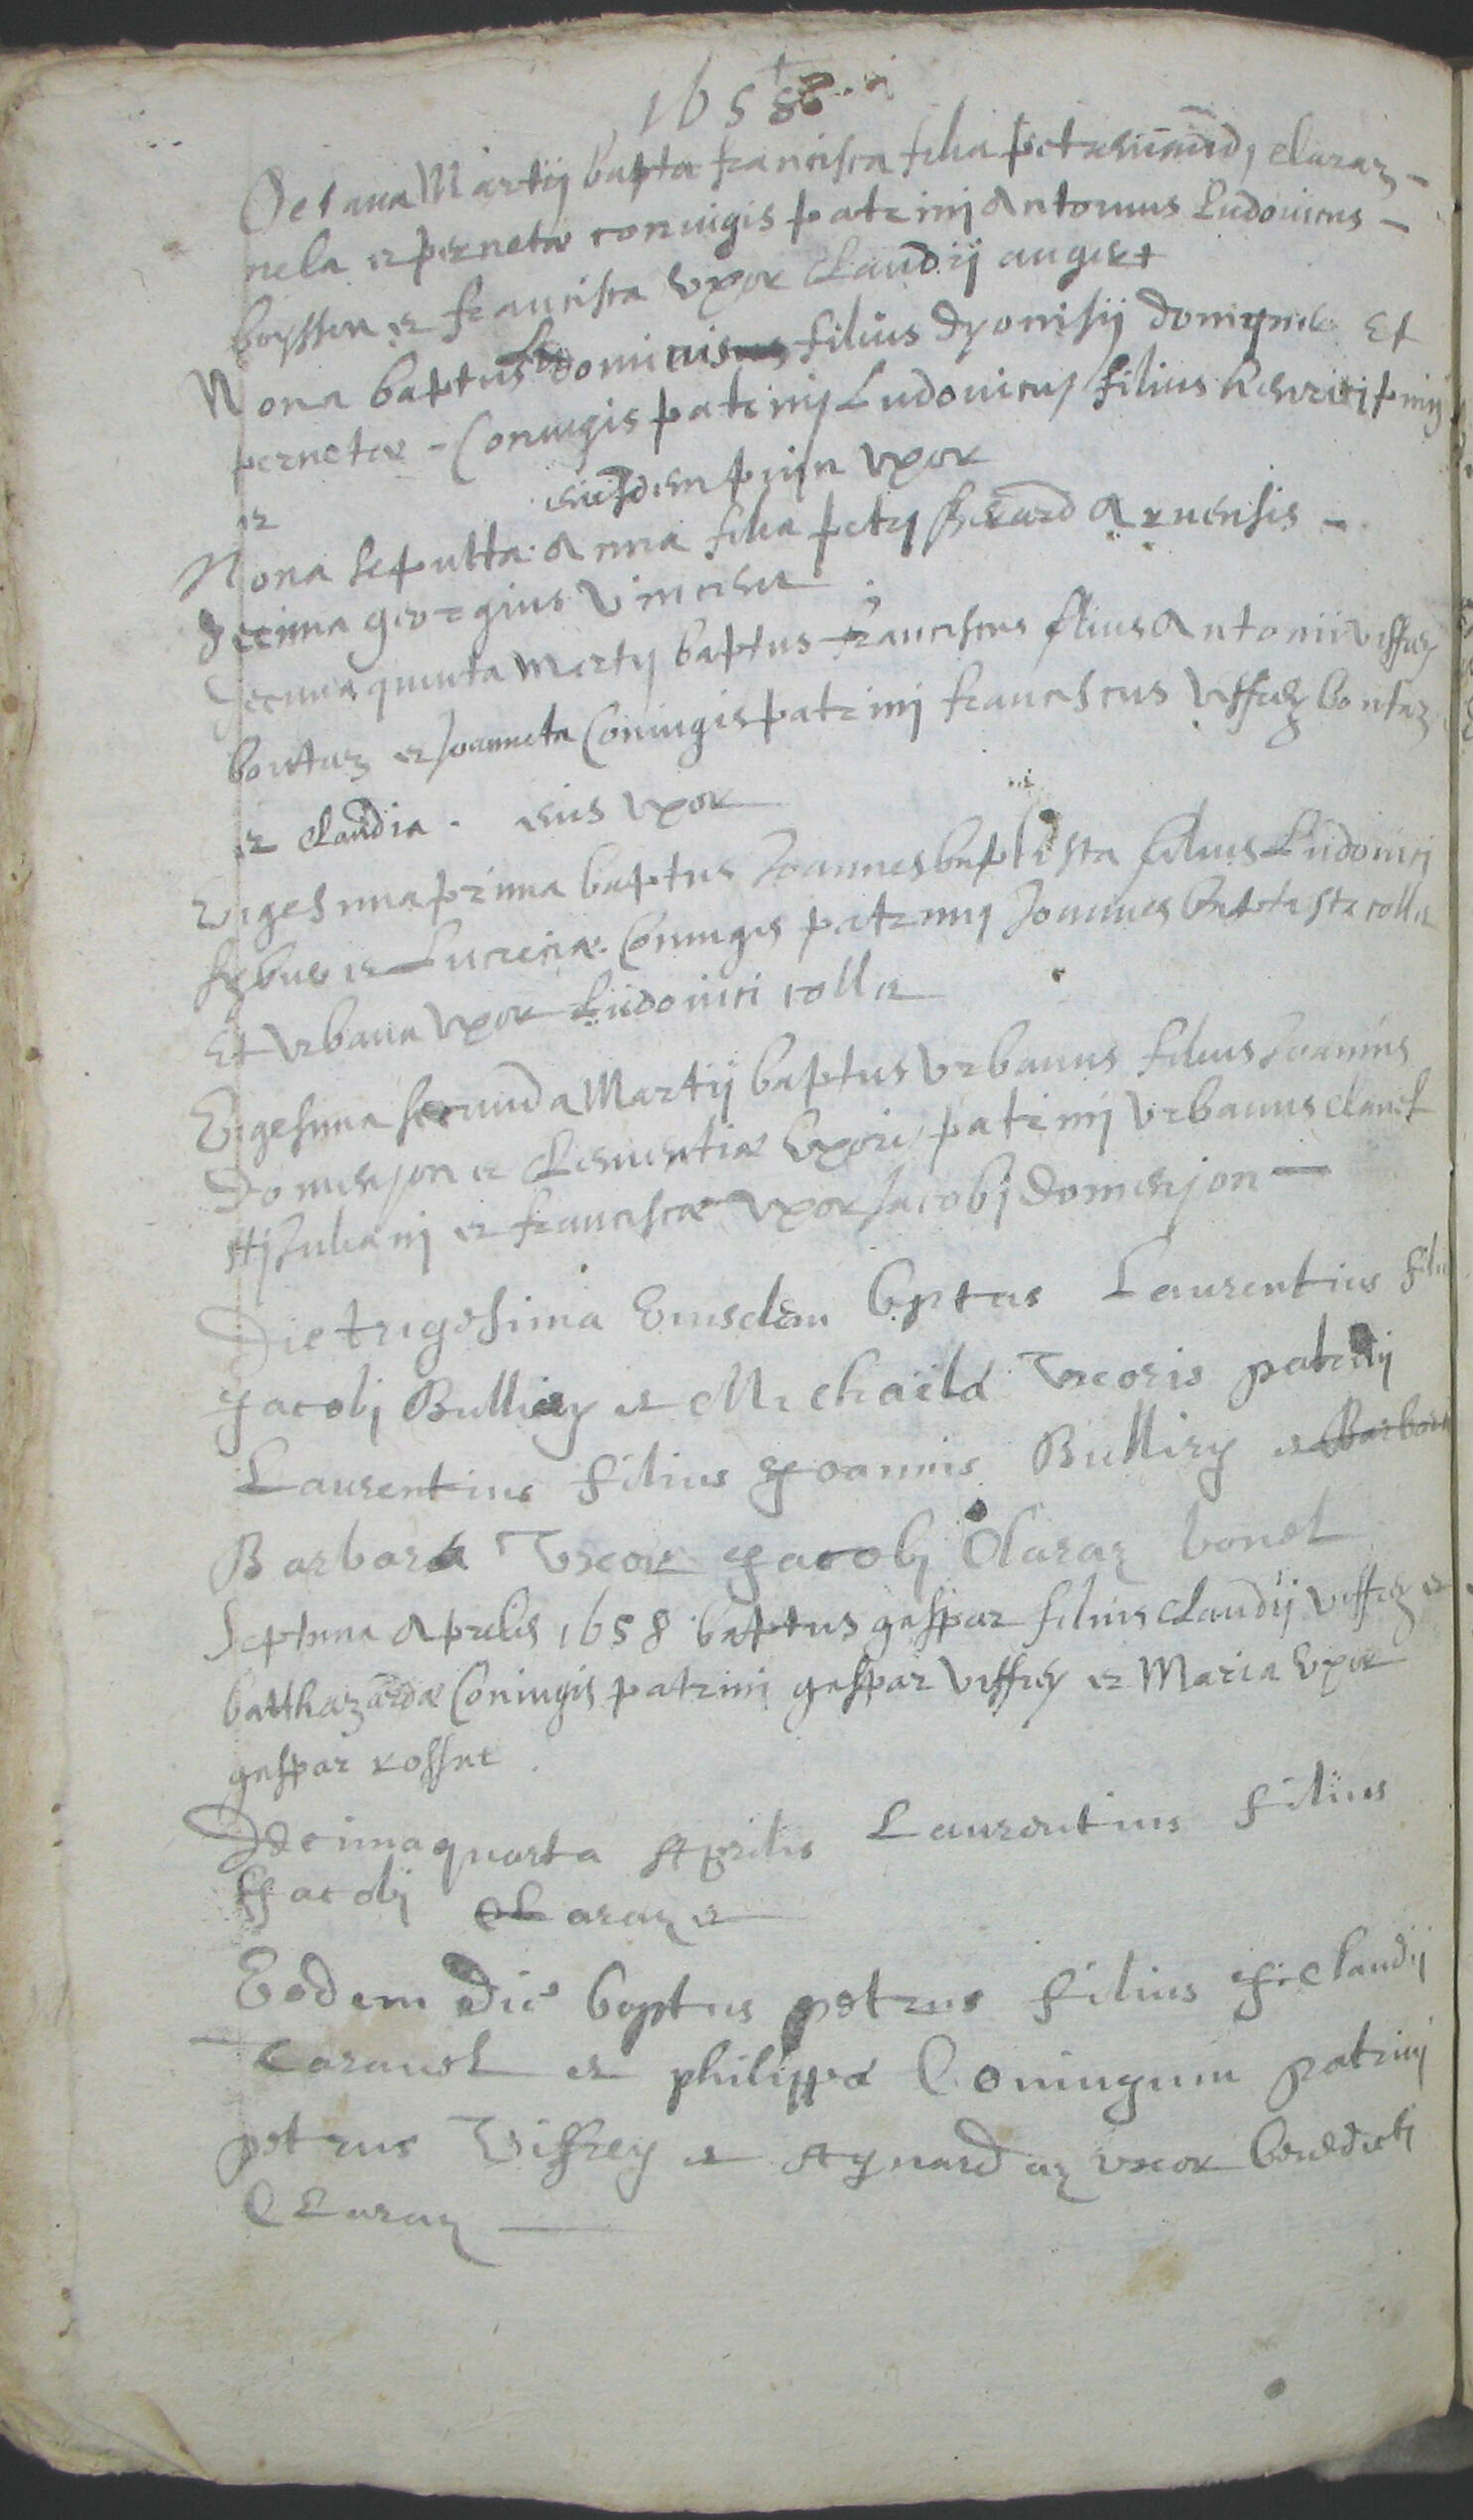 1658
Octava Martij bapta francisca filia petri claraz
nela et pernetæ coniugis patrinj Antonius Ludovicus
boysson et francisca vxor Claudij augert
Nona baptus filius dyonisij Et
pernetæ Coniugis patrinj Ludovicus filius henrici
et eiusdem vxor
Nona sepulta Anna filia petrj Aruensis
decima georgius vincent
decima quinta martij baptus franciscus filius Antonii viffrey
bontaz et Joanneta Coniugis patrinj franciscus viffrey bontaz
et claudia eius vxor
Vigesima prima baptus Joannes baptista filius Ludovicj
et Lucreciæ Coniugis patrinj Joannes baptista collet
Et Vrbana vxor Ludovici collet
Vigesima secunda Martij baptus vrbanus filius Joannis
domenjon et Clementiæ vxoris patrinj vrbanus claret
stj Julianj et franciscæ vxor Jacobj domenjon
Die trigesima Eiusdem bptus Laurentius filiu
Jacobj Bulliez et Michaëlæ Vxoris patrinj
Laurentius filius Joannis Bulliez et Barbara
Barbara Vxor Jacobj Claraz bonet
Septima Aprilis 1658 baptus gaspar filius claudij viffrey et
balthazardæ Coniugis patrini gaspar viffrey et Maria vxor
gaspar rosset
Decima quarta Aprilis Laurentius filius
Jacobj Claraz et
Eodem die baptus petrus filius Claudij
Caraust et philippæ Coniugum patrinj
petrus Viffrey et Aynardaz vxor benedictj
Claraz